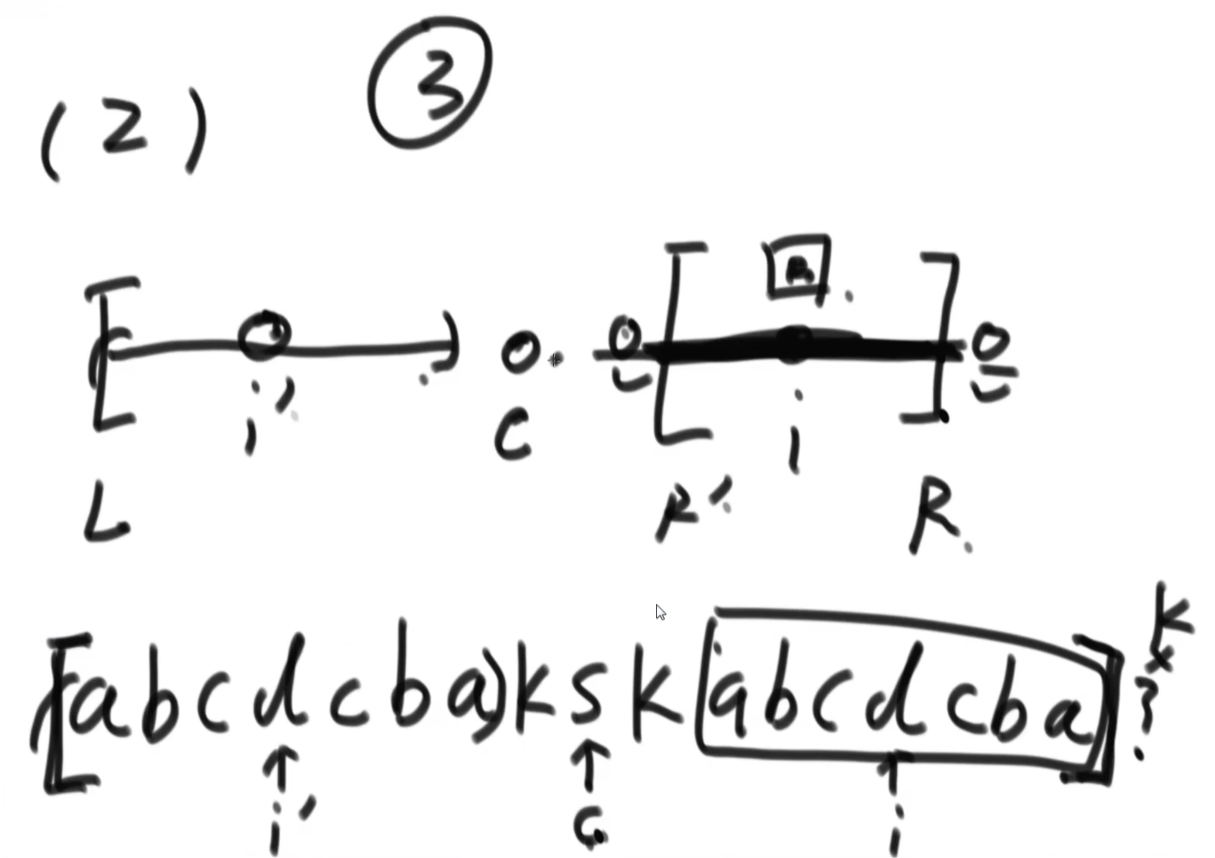 (2) ③
[( i' ) C [ i ]
L R' R
[(abcdcba)ksk[abcdcba]] k
?
i' C i